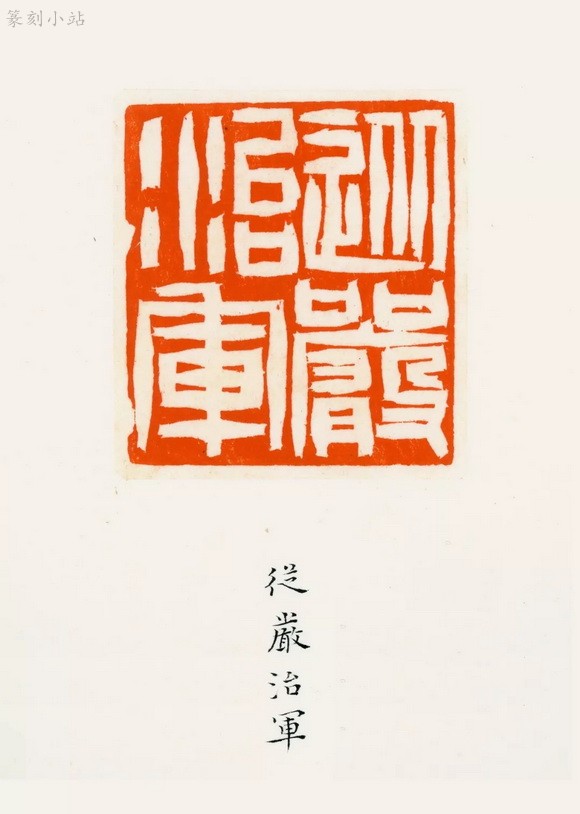 篆刻小站
從嚴
治軍
從
嚴
治
軍